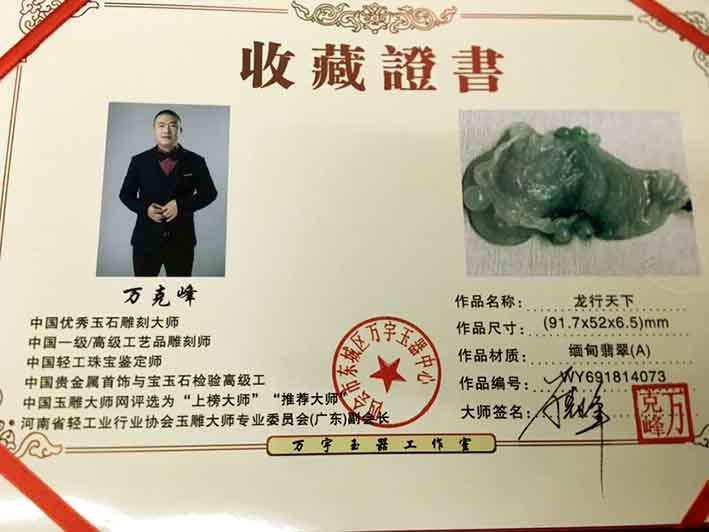 收藏證書
万克峰
中国优秀玉石雕刻大师
中国一级/高级工艺品雕刻师
中国轻工珠宝鉴定师
中国贵金属首饰与宝玉石检验高级工
中国玉雕大师网评选为“上榜大师”“推荐大师”
河南省轻工业行业协会玉雕大师专业委员会(广东)副会长
作品名称: 龙行天下
作品尺寸: (91.7x52x6.5)mm
作品材质: 缅甸翡翠(A)
作品编号: WY691814073
大师签名: 万克峰
万克峰
四会市东城区万宇玉器中心
万宇玉器工作室